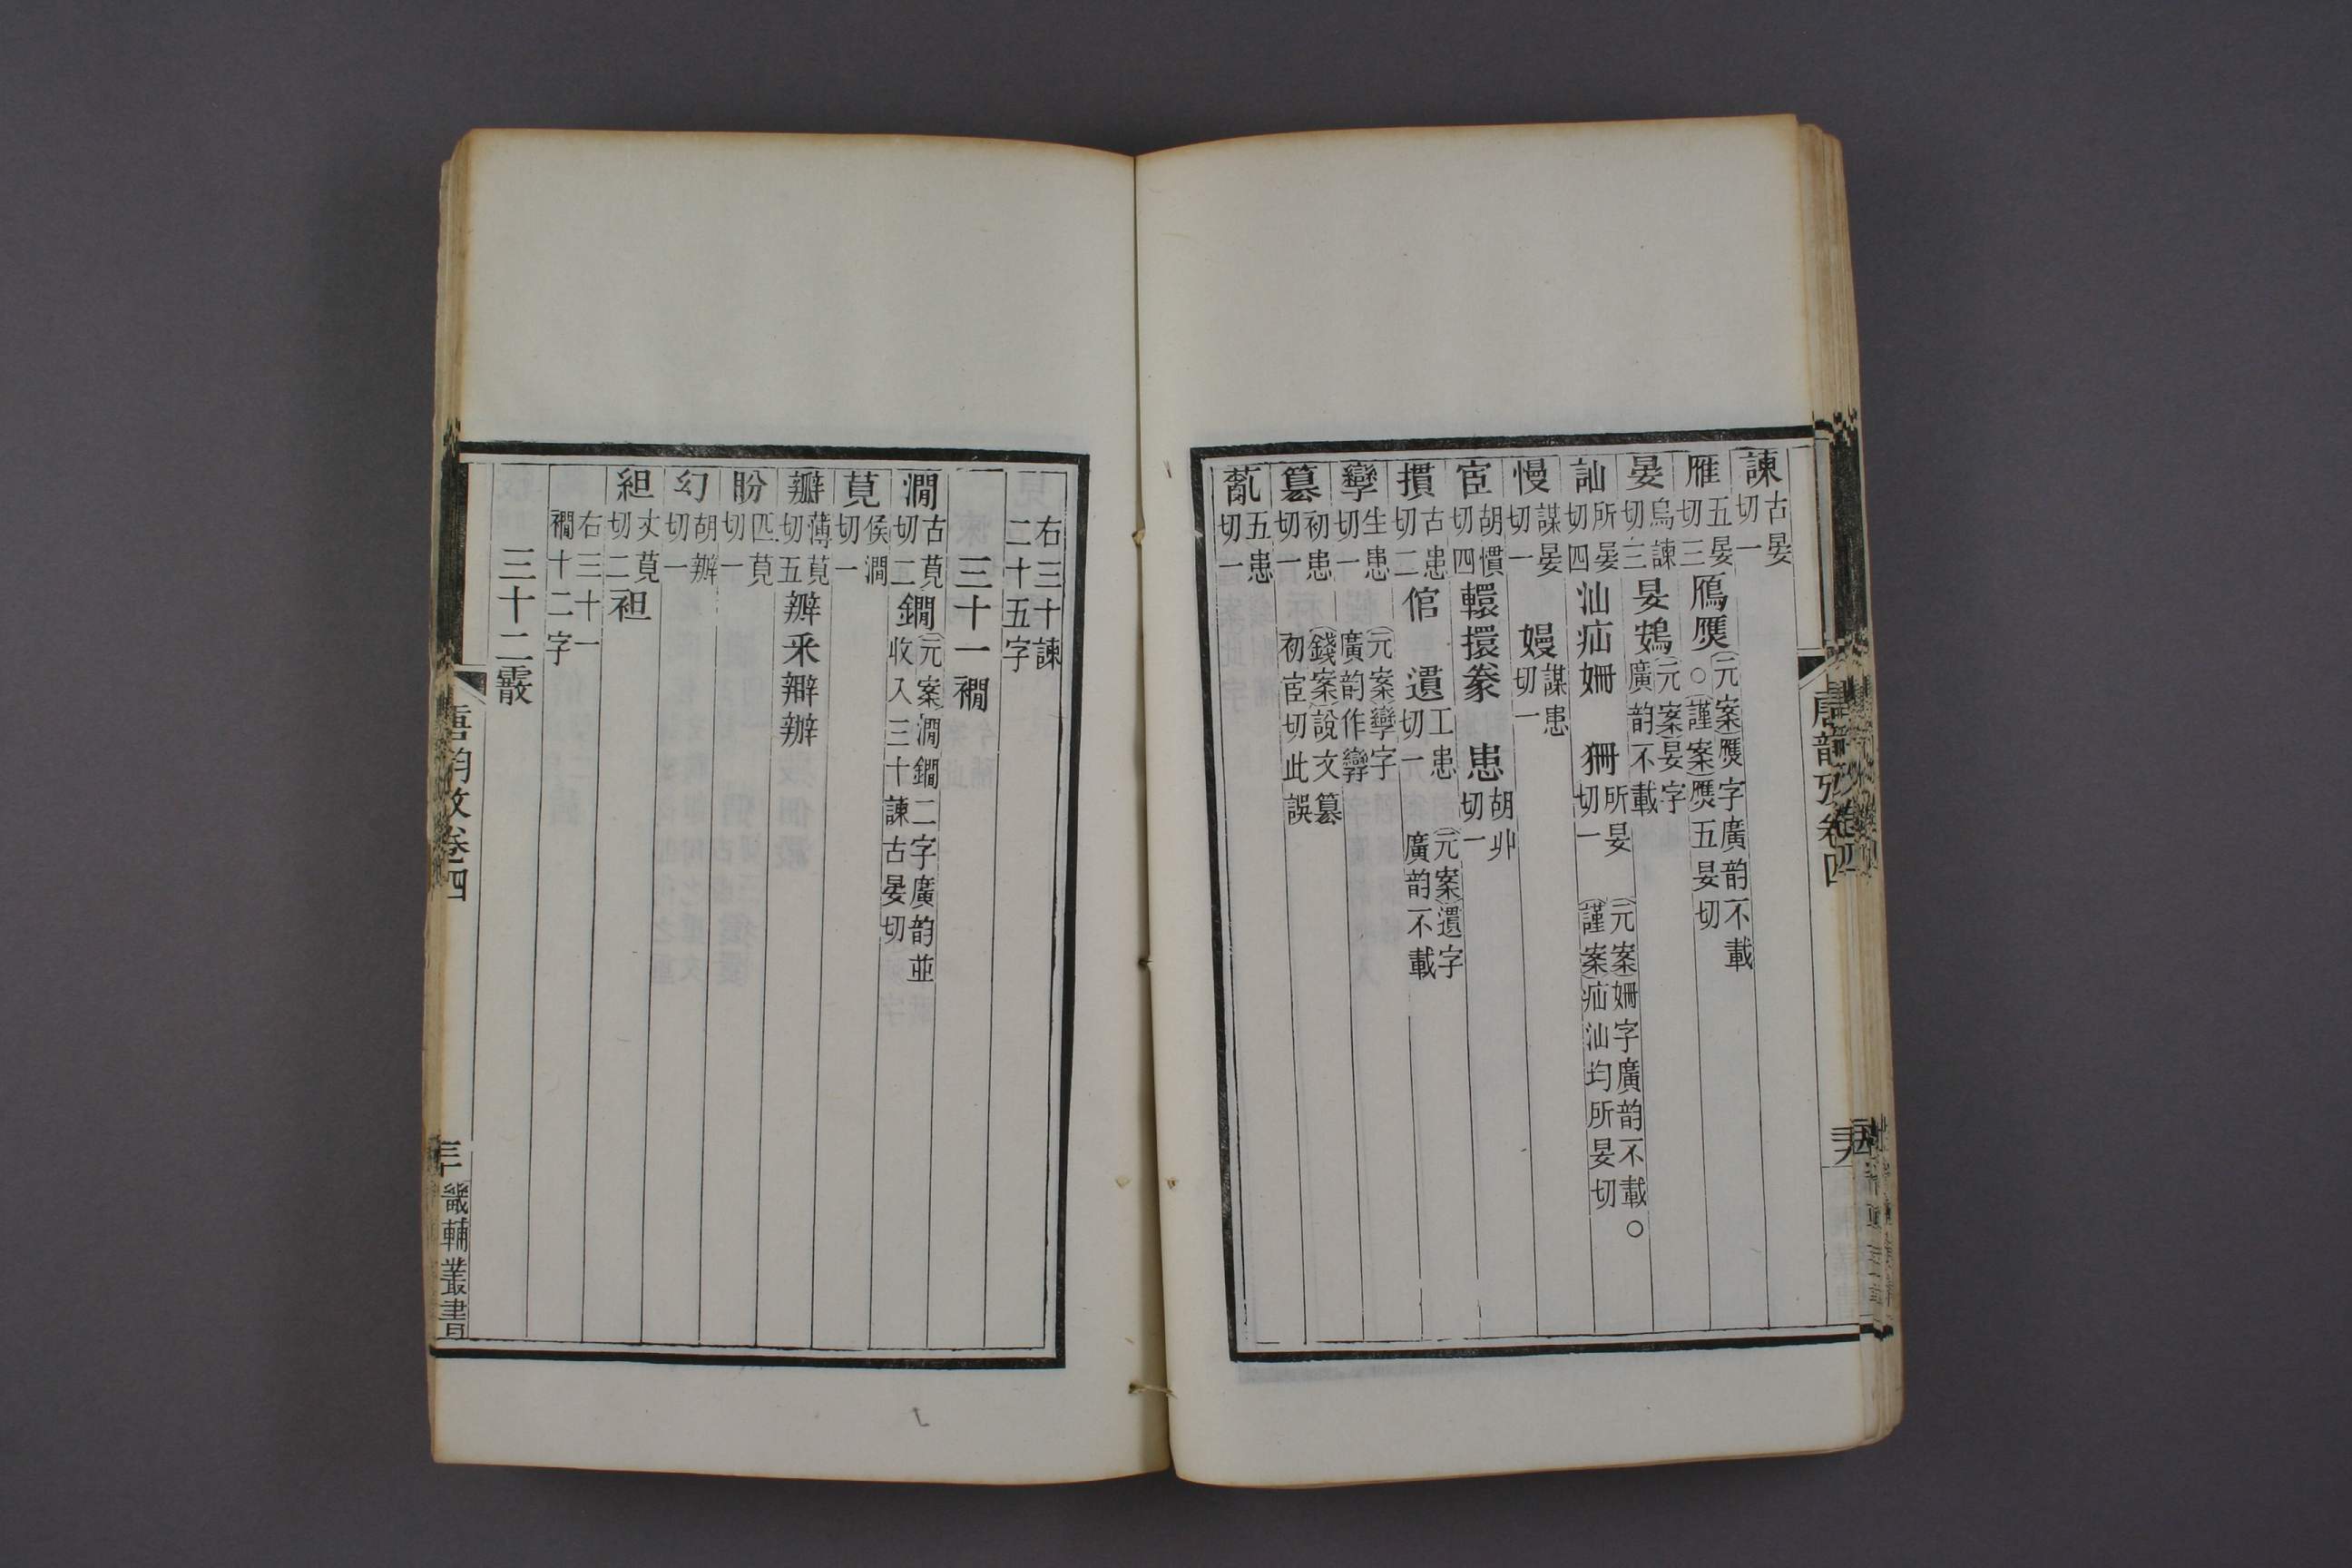 諫古晏切一
雁五晏切三鴈㷼元案㷼字廣韵不載○謹案㷼五晏切
晏烏諫切三旻鴳元案旻字廣韵不載
訕所晏切四汕疝姍 狦所晏切一 元案姍字廣韵不載○謹案疝汕均所晏切
慢謀晏切一 嫚謀患切一
宦胡慣切四轘擐豢 患胡丱切一
摜古患切二倌 遺工患切一 元案遺字廣韵不載
孿生患切一 元案孿字廣韵作𤅩
篡初患切一 錢案說文篡初宦切此誤
薍五患切一
右三十諫二十五字
三十一襉
澗古莧切二鐗元案澗鐗二字廣韵並收入三十諫古晏切
莧侯澗切一
瓣薄莧切五辦釆辧辦
盼匹莧切一
幻胡辦切一
組丈莧切二袒
右三十一襉十二字
三十二霰
唐韵攷卷四
三十
畿輔叢書
唐韵攷卷四